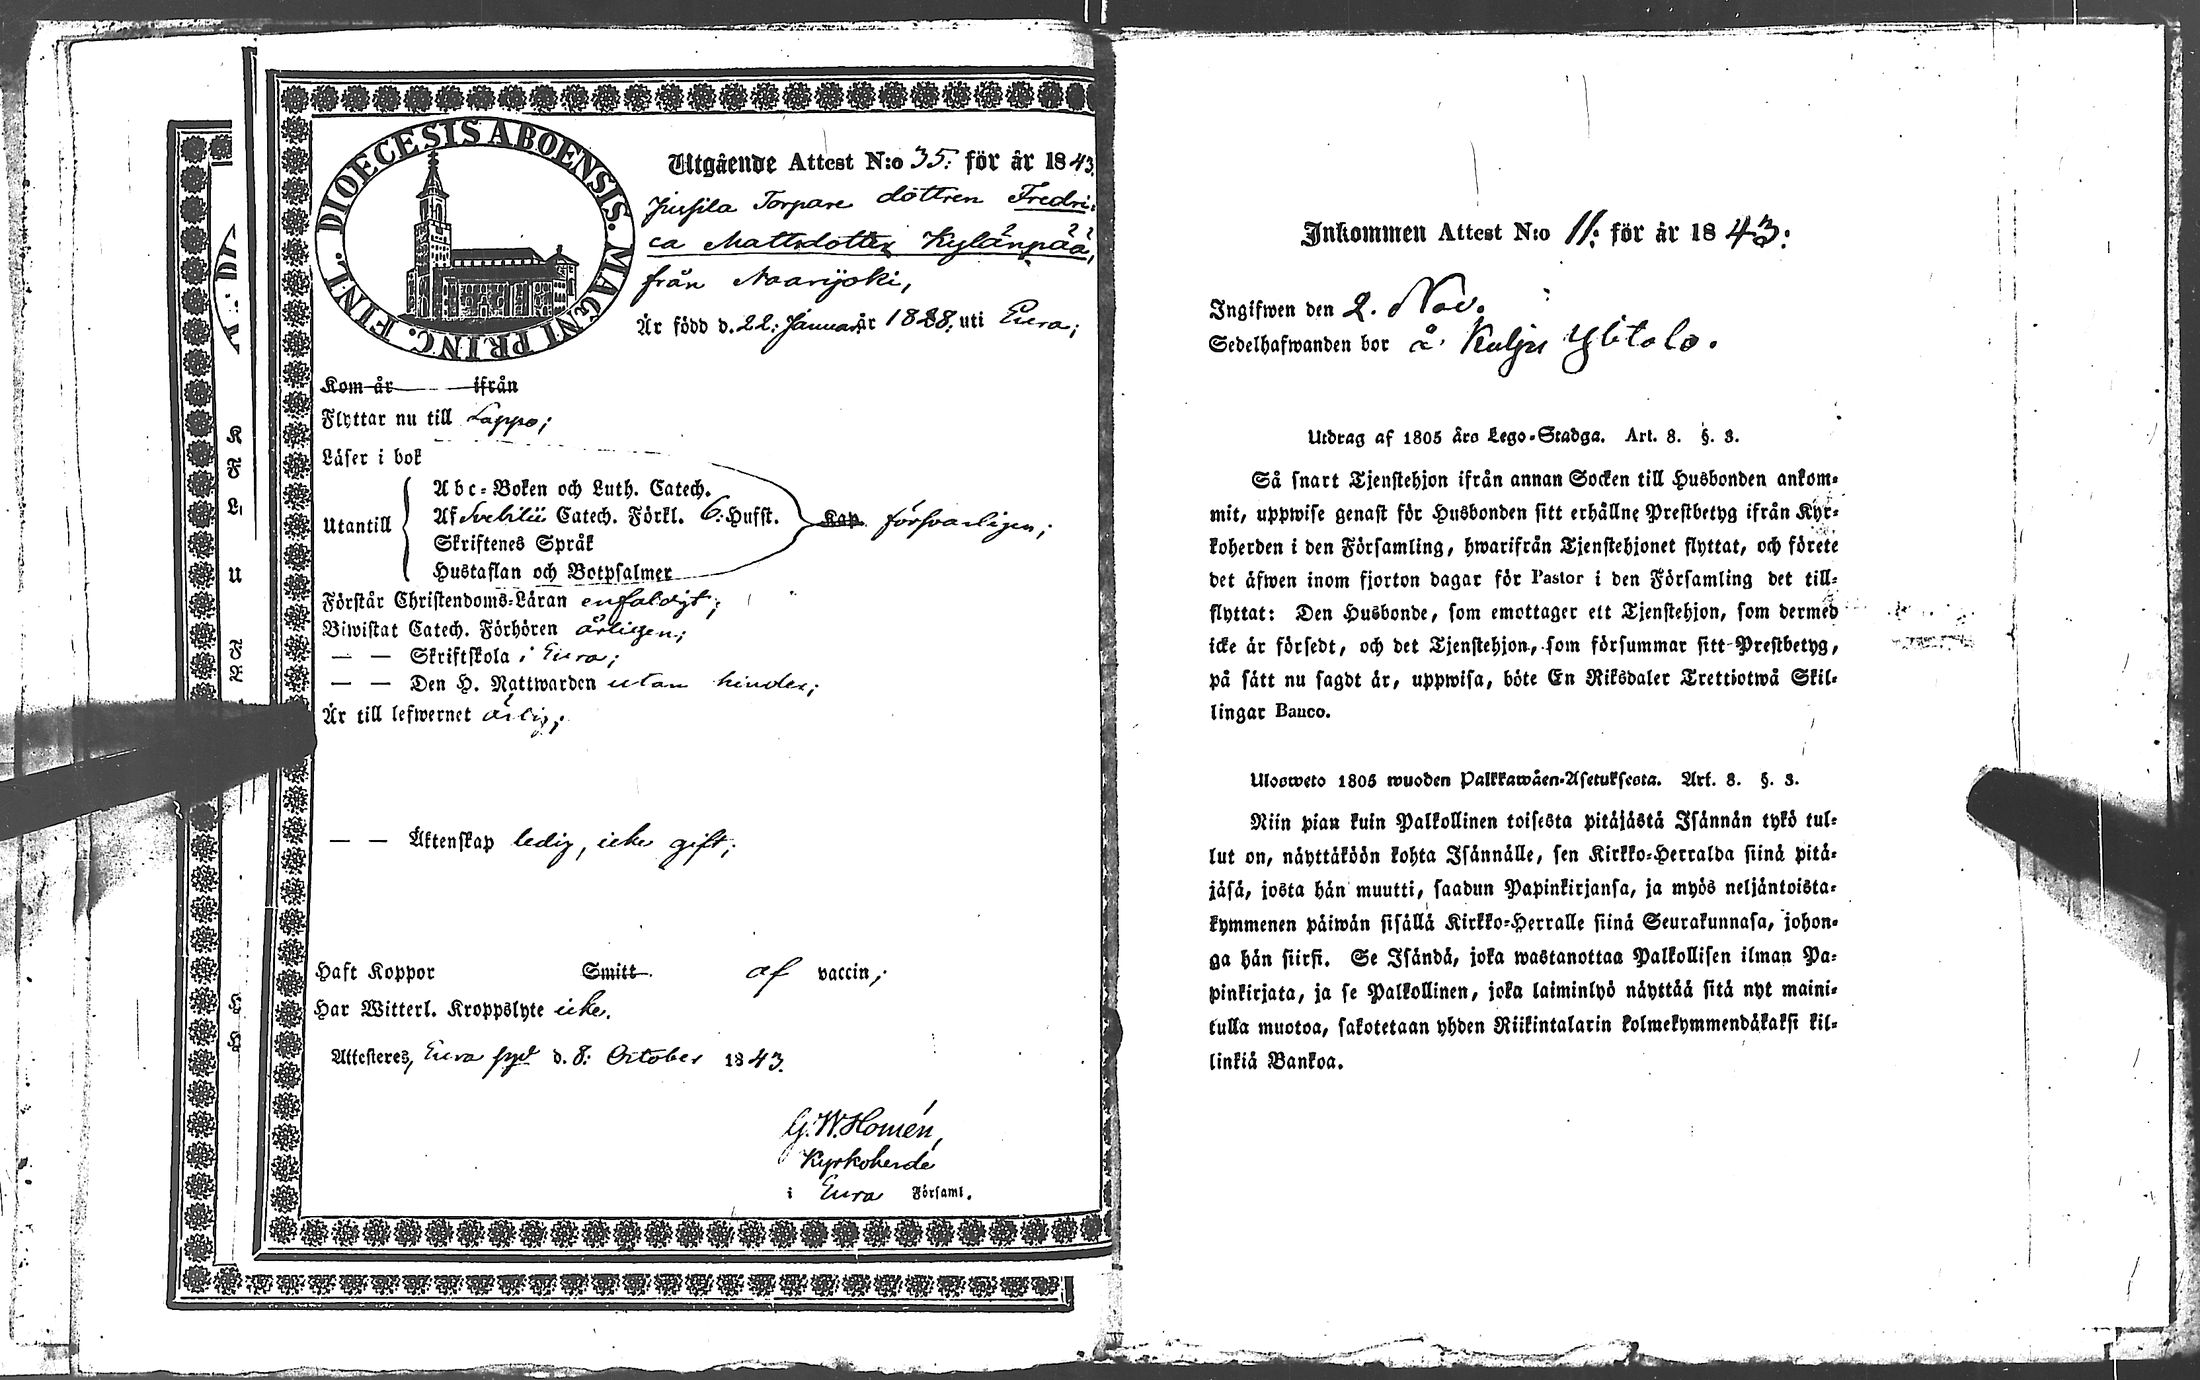 DIOECESIS ABOENSIS. MAGNI PRINC. FINL.
Utgående Attest N:o 35: för år 1843.
Torpare dottren Fredri:
ca Mattsdotter Kylänpää,
från Naarijoki,
Är född d. 22: Januari år 1828, uti Eura;
Kom år ifrån
Flyttar nu till Lappo;
Läser i bok
Utantill
Abc-Boken och Luth. Catech.
Af Svebilii Catech. Förkl. 6: Hufst.
Skriftenes Språk
Hustaflan och Botpsalmer
Kap. försvarligen;
Förstår Christendoms-Läran enfaldigt;
Biwistat Catech. Förhören årligen;
— — Skriftskola i Eura;
— — Den H. Nattwarden utan hinder;
Är till lefwernet ärlig;
— — Äktenskap ledig, icke gift;
Haft Koppor Smitt af vaccin;
Har Witterl. Kroppslyte icke.
Attesteres, Eura d. 8: October 1843.
G. W. Homén,
Kyrkoherde
i Eura Församl.
Inkommen Attest N:o 11: för år 1843:
Ingifwen den 2. Nov.
Sedelhafwanden bor å Kulju Ylitalo.
Utdrag af 1805 års Lego-Stadga. Art. 8. §. 3.
Så snart Tjenstehjon ifrån annan Socken till Husbonden ankom-
mit, uppwise genast för Husbonden sitt erhållne Prestbetyg ifrån Kyr-
koherden i den Församling, hwarifrån Tjenstehjonet flyttat, och förete
det äfwen inom fjorton dagar för Pastor i den Församling det till-
flyttat: Den Husbonde, som emottager ett Tjenstehjon, som dermed
icke är försedt, och det Tjenstehjon, som försummar sitt Prestbetyg,
på sätt nu sagdt är, uppwisa, böte En Riksdaler Trettiotwå Skil-
lingar Banco.
Ulosweto 1805 wuoden Palkkawäen-Asetuksesta. Art. 8. §. 3.
Niin pian kuin Palkollinen toisesta pitäjästä Isännän tykö tul-
lut on, näyttäköön kohta Isännälle, sen Kirkko-Herralda siinä pitä-
jäsä, josta hän muutti, saadun Papinkirjansa, ja myös neljäntoista-
kymmenen päiwän sisällä Kirkko-Herralle siinä Seurakunnasa, johon-
ga hän siirsi. Se Isändä, joka wastanottaa Palkollisen ilman Pa-
pinkirjata, ja se Palkollinen, joka laiminlyö näyttää sitä nyt maini-
tulla muotoa, sakotetaan yhden Riikintalarin kolmekymmendäkaksi kil-
linkiä Bankoa.